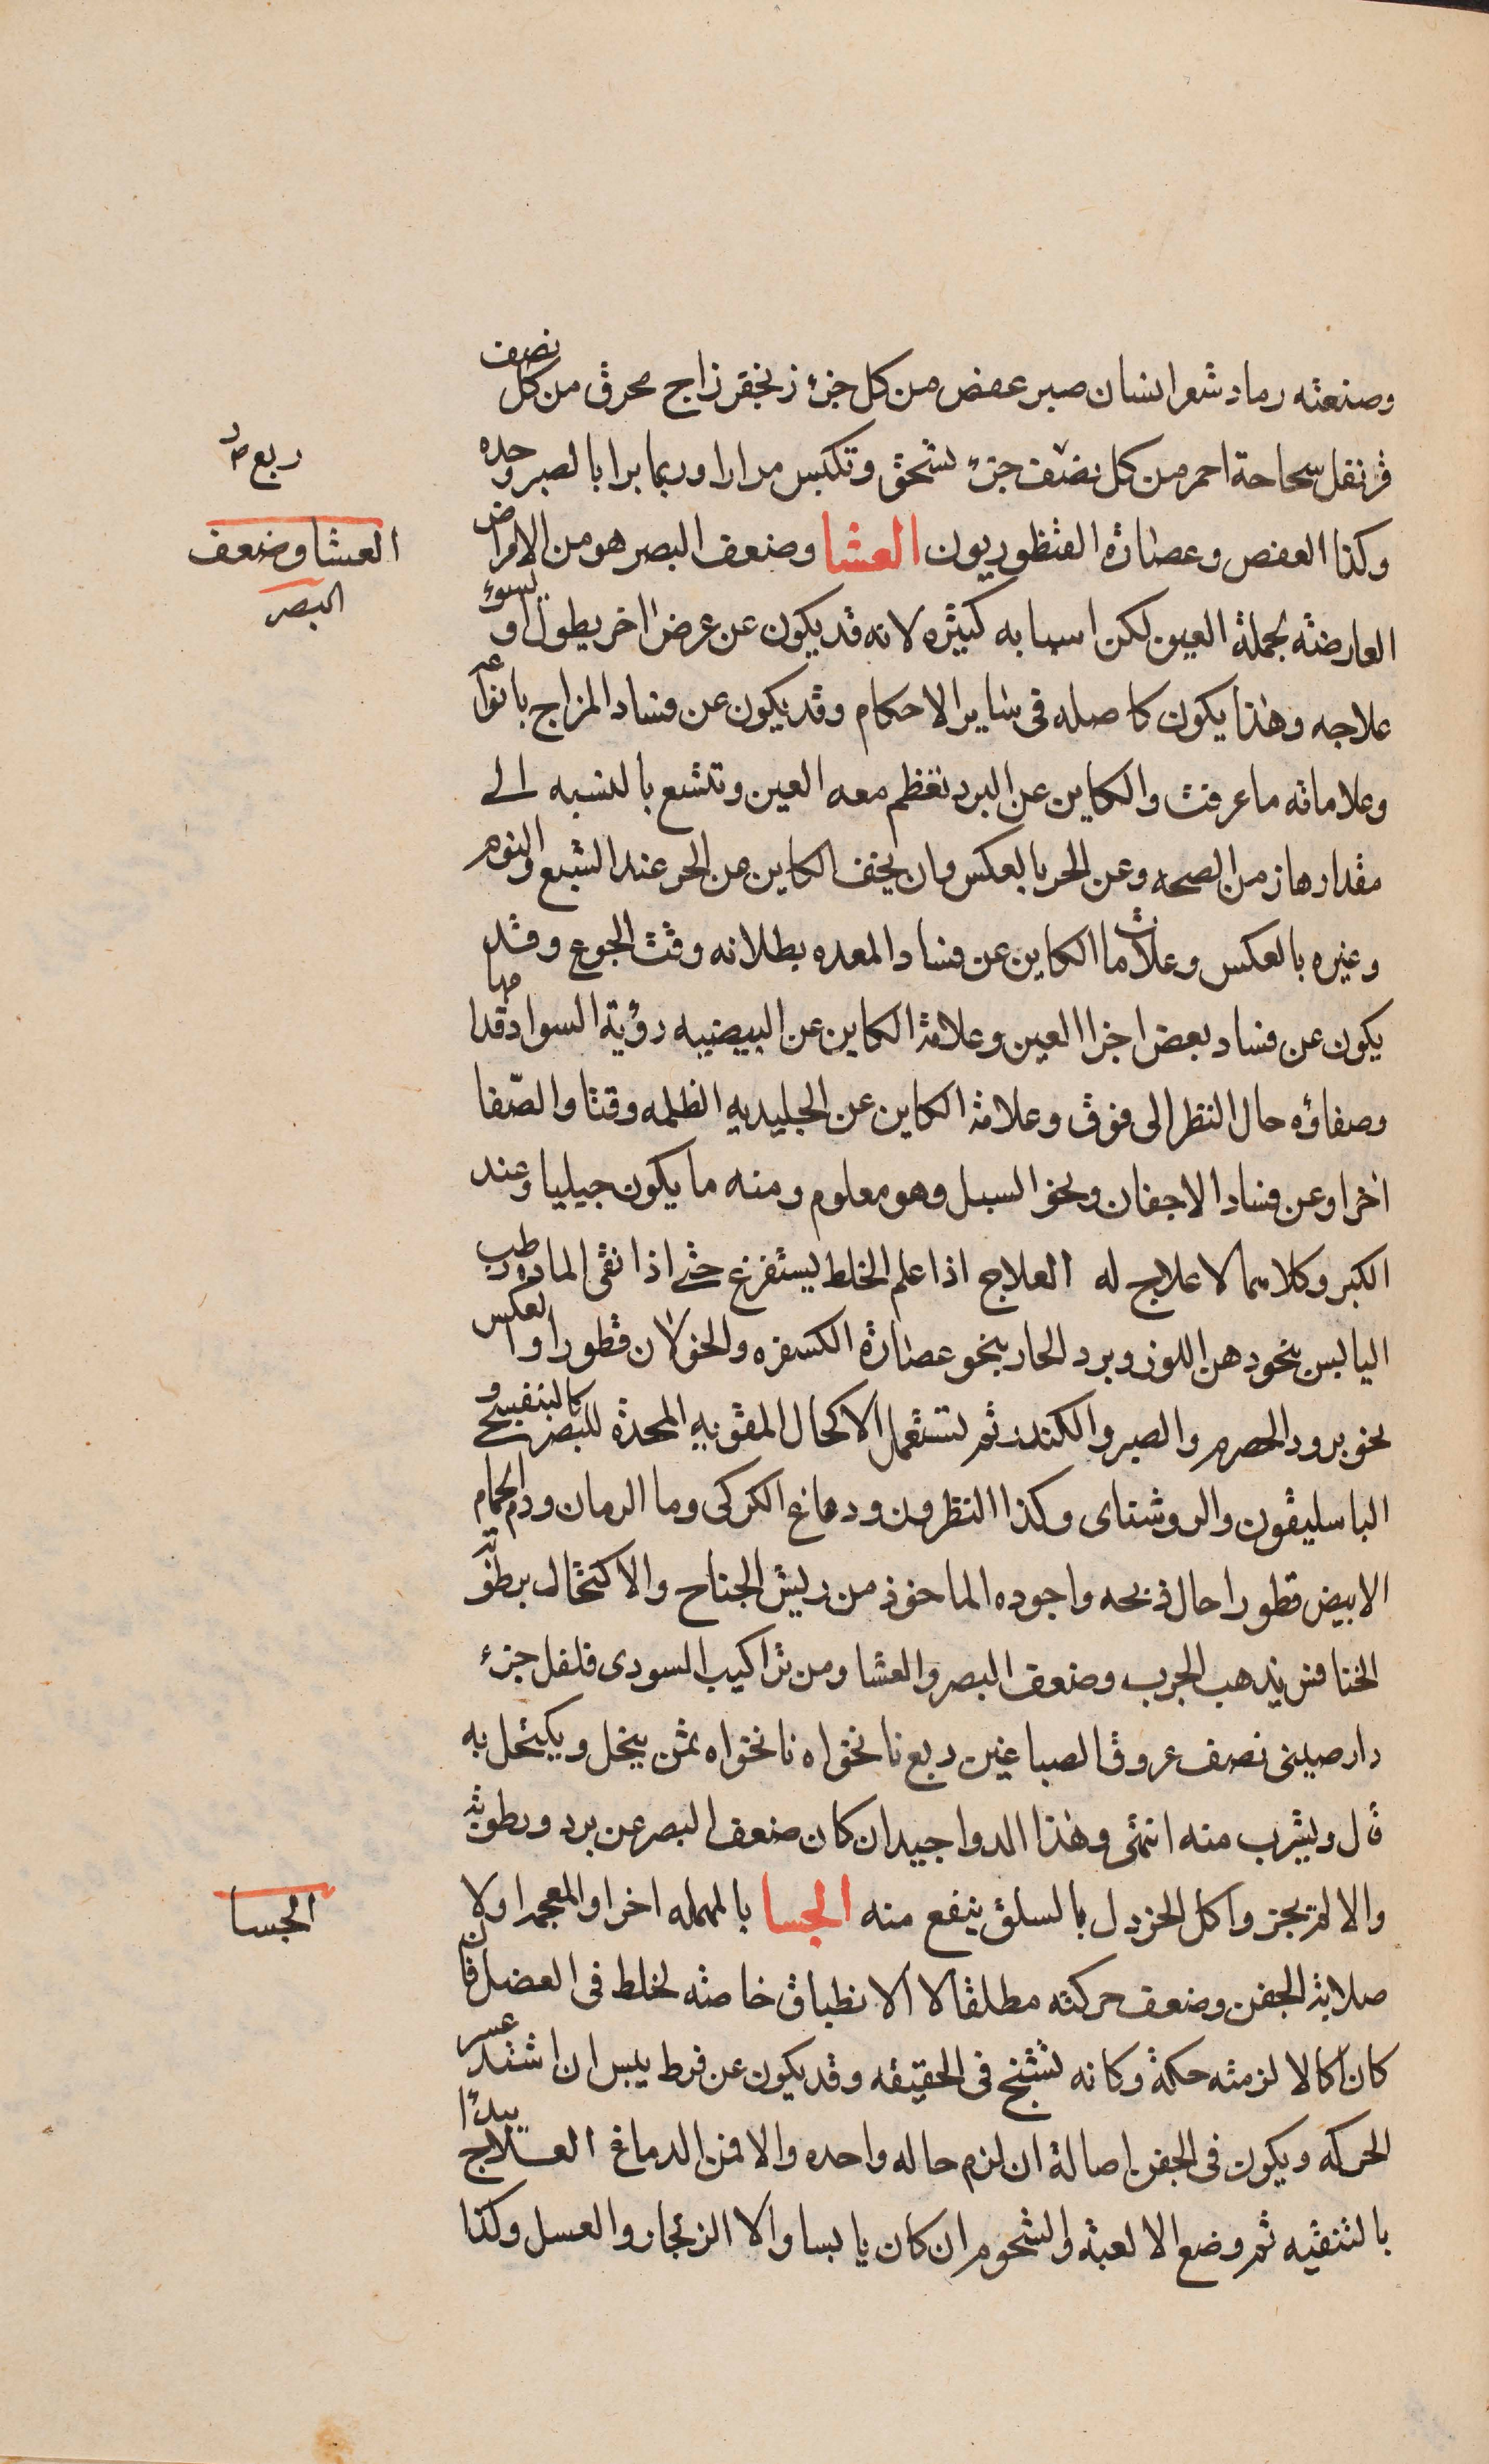 وصنعته رماد شعر انسان صبر عفص من كل جزء زنجفر زاج محرق من كل نصف
قرنفل سحاحة احمر من كل نصف جزء تسحق وتكبس مرارا وربما برا بالصبر وحده
ربع
وكذا العفص وعصارة القنطوريون العشا وضعف البصر هو من الامراض
العشا وضعف
البصر
العارضة لجملة العين لكن اسبابه كثيره لانه قد يكون عن عرض اخر يطول او لسوء
علاجه وهذا يكون كاصله فى ساير الاحكام وقد يكون عن فساد المزاج بانواعه
وعلاماته ما عرفت والكاين عن البرد تعظم معه العين وتتسع بالنسبه الى
مقدارها زمن الصحه وعن الحر بالعكس وان يخف الكاين عن الحر عند الشبع والنوم
وغيره بالعكس وعلامات الكاين عن فساد المعده بطلانه وقت الجوع وقد
يكون عن فساد بعض اجزا العين وعلامة الكاين عن البيضيه رؤية السواد قدامها
وصفاؤه حال النظر الى فوق وعلامة الكاين عن الجليديه الظلمه وقتا والصفا
اخرا وعن فساد الاجفان ونحو السبل وهو معلوم ومنه ما يكون جبليا وعند
الكبر وكلاهما لا علاج له العلاج اذا علم الخلط يستفرغ حتى اذا نقى الماده رطب
اليابس بنحو دهن اللوز وبرد الحار بنحو عصارة الكسفره والخولان قطورا والعكس
بنحو برود الحصرم والصبر والكندر ثم تستعمل الاكحال المقويه المحدة للبصر كالبنفسج و
الباسليقون والروشناى وكذا النظرون ودماغ الكركى وما الرمان ودم الحمام
الابيض قطورا حال ذبحه واجوده الماخوذ من ريش الجناح والاكتحال برطوبة
الخنافس يذهب الجرب وضعف البصر والعشا ومن تراكيب السودى فلفل جزء
دارصينى نصف عروق الصباغين ربع نانخواه نانخواه ثمن ينخل ويكتحل به
قل ويشرب منه انتهى وهذا الدوا جيد ان كان ضعف البصر عن برد ورطوبة
والا لم يجز واكل الخردل بالسلق ينفع منه الجسا بالمهمله اخرا والمعجمه اولا
الجسا
صلابة الجفن وضعف حركته مطلقا لا الانطباق خاصه لخلط فى العضل فان
كان اكالا لزمته حكة وكانه تشنج فى الحقيقه وقد يكون عن فرط يبس ان اشتد عسر
الحركه ويكون فى الجفن اصالة ان لزم حاله واحده والا فمن الدماغ العلاج يبدئا
بالتنقيه ثم وضع الالعبة والشحوم ان كان يابسا والا الزنجار والعسل وكذا